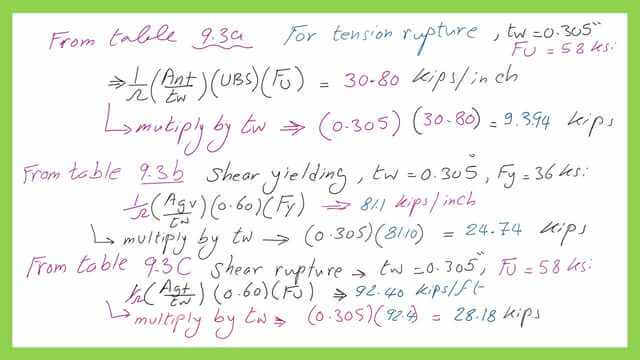 From table 9.3a For tension rupture , tw=0.305"
FU = 58 ksi
⇒ 1/Ω (Ant/tw)(UBS)(FU) = 30.80 kips/inch
↳ mutiply by tw ⇒ (0.305) (30.80) = 9.394 kips
From table 9.3b shear yielding , tw = 0.305" , Fy = 36 ksi
1/Ω (Agv/tw)(0.60)(Fy) ⇒ 81.1 kips/inch
↳ multiply by tw → (0.305)(81.10) = 24.74 kips
From table 9.3C shear rupture → tw=0.305", FU = 58 ksi
1/Ω (Agt/tw)(0.60)(FU) ⇒ 92.40 kips/ft
↳ multiply by tw ⇒ (0.305)(92.4) = 28.18 kips